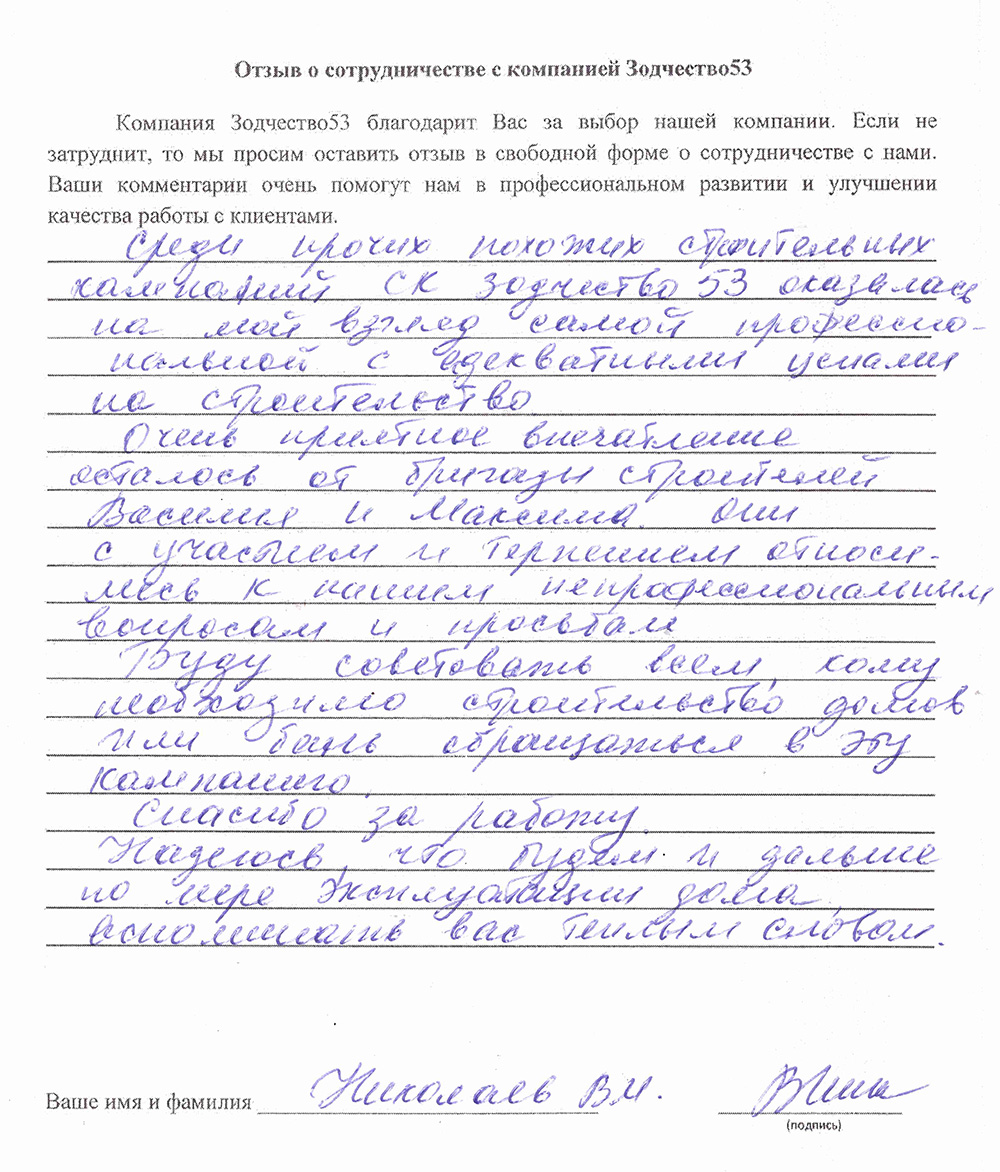 Отзыв о сотрудничестве с компанией Зодчество53
Компания Зодчество53 благодарит Вас за выбор нашей компании. Если не
затруднит, то мы просим оставить отзыв в свободной форме о сотрудничестве с нами.
Ваши комментарии очень помогут нам в профессиональном развитии и улучшении
качества работы с клиентами.
Среди прочих похожих строительных
кампаний СК Зодчество 53 оказалась
на мой взгляд самой профессио-
нальной с адекватными ценами
на строительство
Очень приятное впечатление
осталось от бригады строителей
Василия и Максима. Они
с участием и терпением относи-
лись к нашим непрофессиональным
вопросам и просьбам
Буду советовать всем, кому
необходимо строительство домов
или бань обращаться в эту
кампанию.
Спасибо за работу.
Надеюсь, что будем и дальше
по мере эксплуатации дома,
вспоминать вас теплым словом.
Ваше имя и фамилия Николаев В.И.
(подпись)